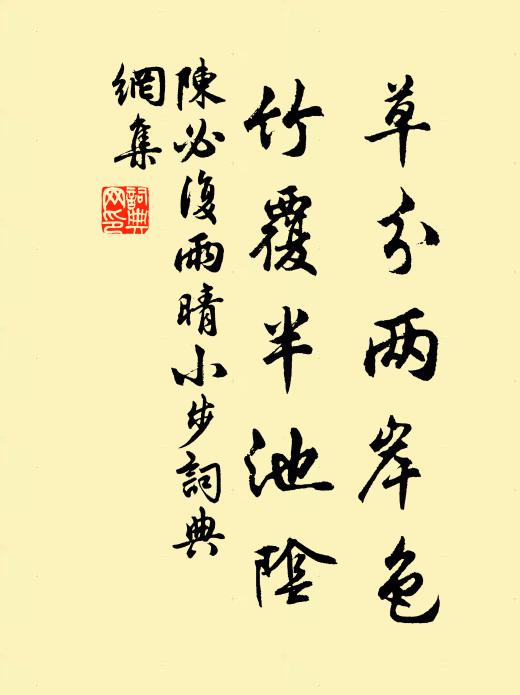 草分两岸色
竹覆半池陰
陳必復雨晴小步詞典
網集
詞典
网印